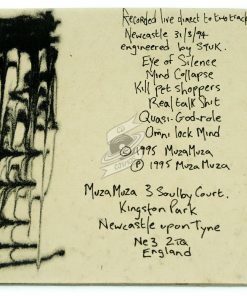 Recorded live direct to two track
Newcastle 31/3/94
engineered by STUK.
Eye of Silence
Mind Collapse
Kill pet shoppers
Real talk Shit
Quasi-God-role
Omni lock Mind
© 1995 MuzaMuza
℗ 1995 MuzaMuza
MuzaMuza 3 Soulby Court.
Kingston Park
Newcastle upon Tyne
Ne3 2TQ
England